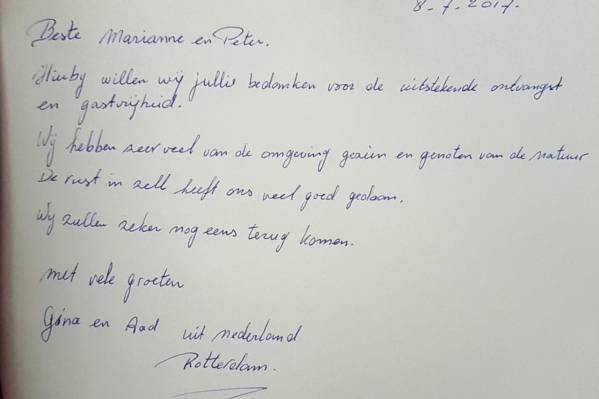 8-7-2017.
Beste Marianne en Peter.
Hierby willen wij jullie bedanken voor de uitstekende ontvangst
en gastvrijheid.
Wij hebben zeer veel van de omgeving gezien en genoten van de natuur
De rust in zell heeft ons veel goed gedaan.
Wij zullen zeker nog eens terug komen.
met vele groeten
Gina en Aad uit nederland
Rotterdam.